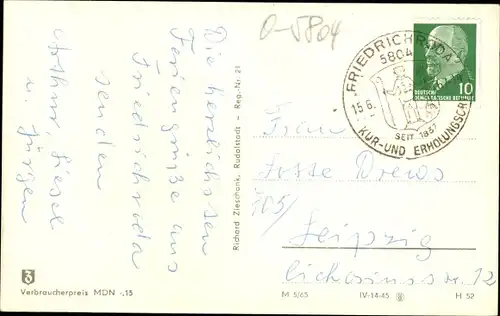 0-5804
FRIEDRICHRODA
5804
15.6.
SEIT 1837
KUR-UND ERHOLUNGSORT
DEUTSCHE
DEMOKRATISCHE REPUBLIK
10
Die herzlichsten
Feriengrüße aus
Friedrichroda
senden
Arthur, Liesel
u. Jürgen
Richard Zieschank, Rudolstadt – Reg.-Nr. 21
Frau
Lotte Drews
705/ Leipzig
str. 12
Verbraucherpreis MDN -,15
M 5/65
IV-14-45
H 52